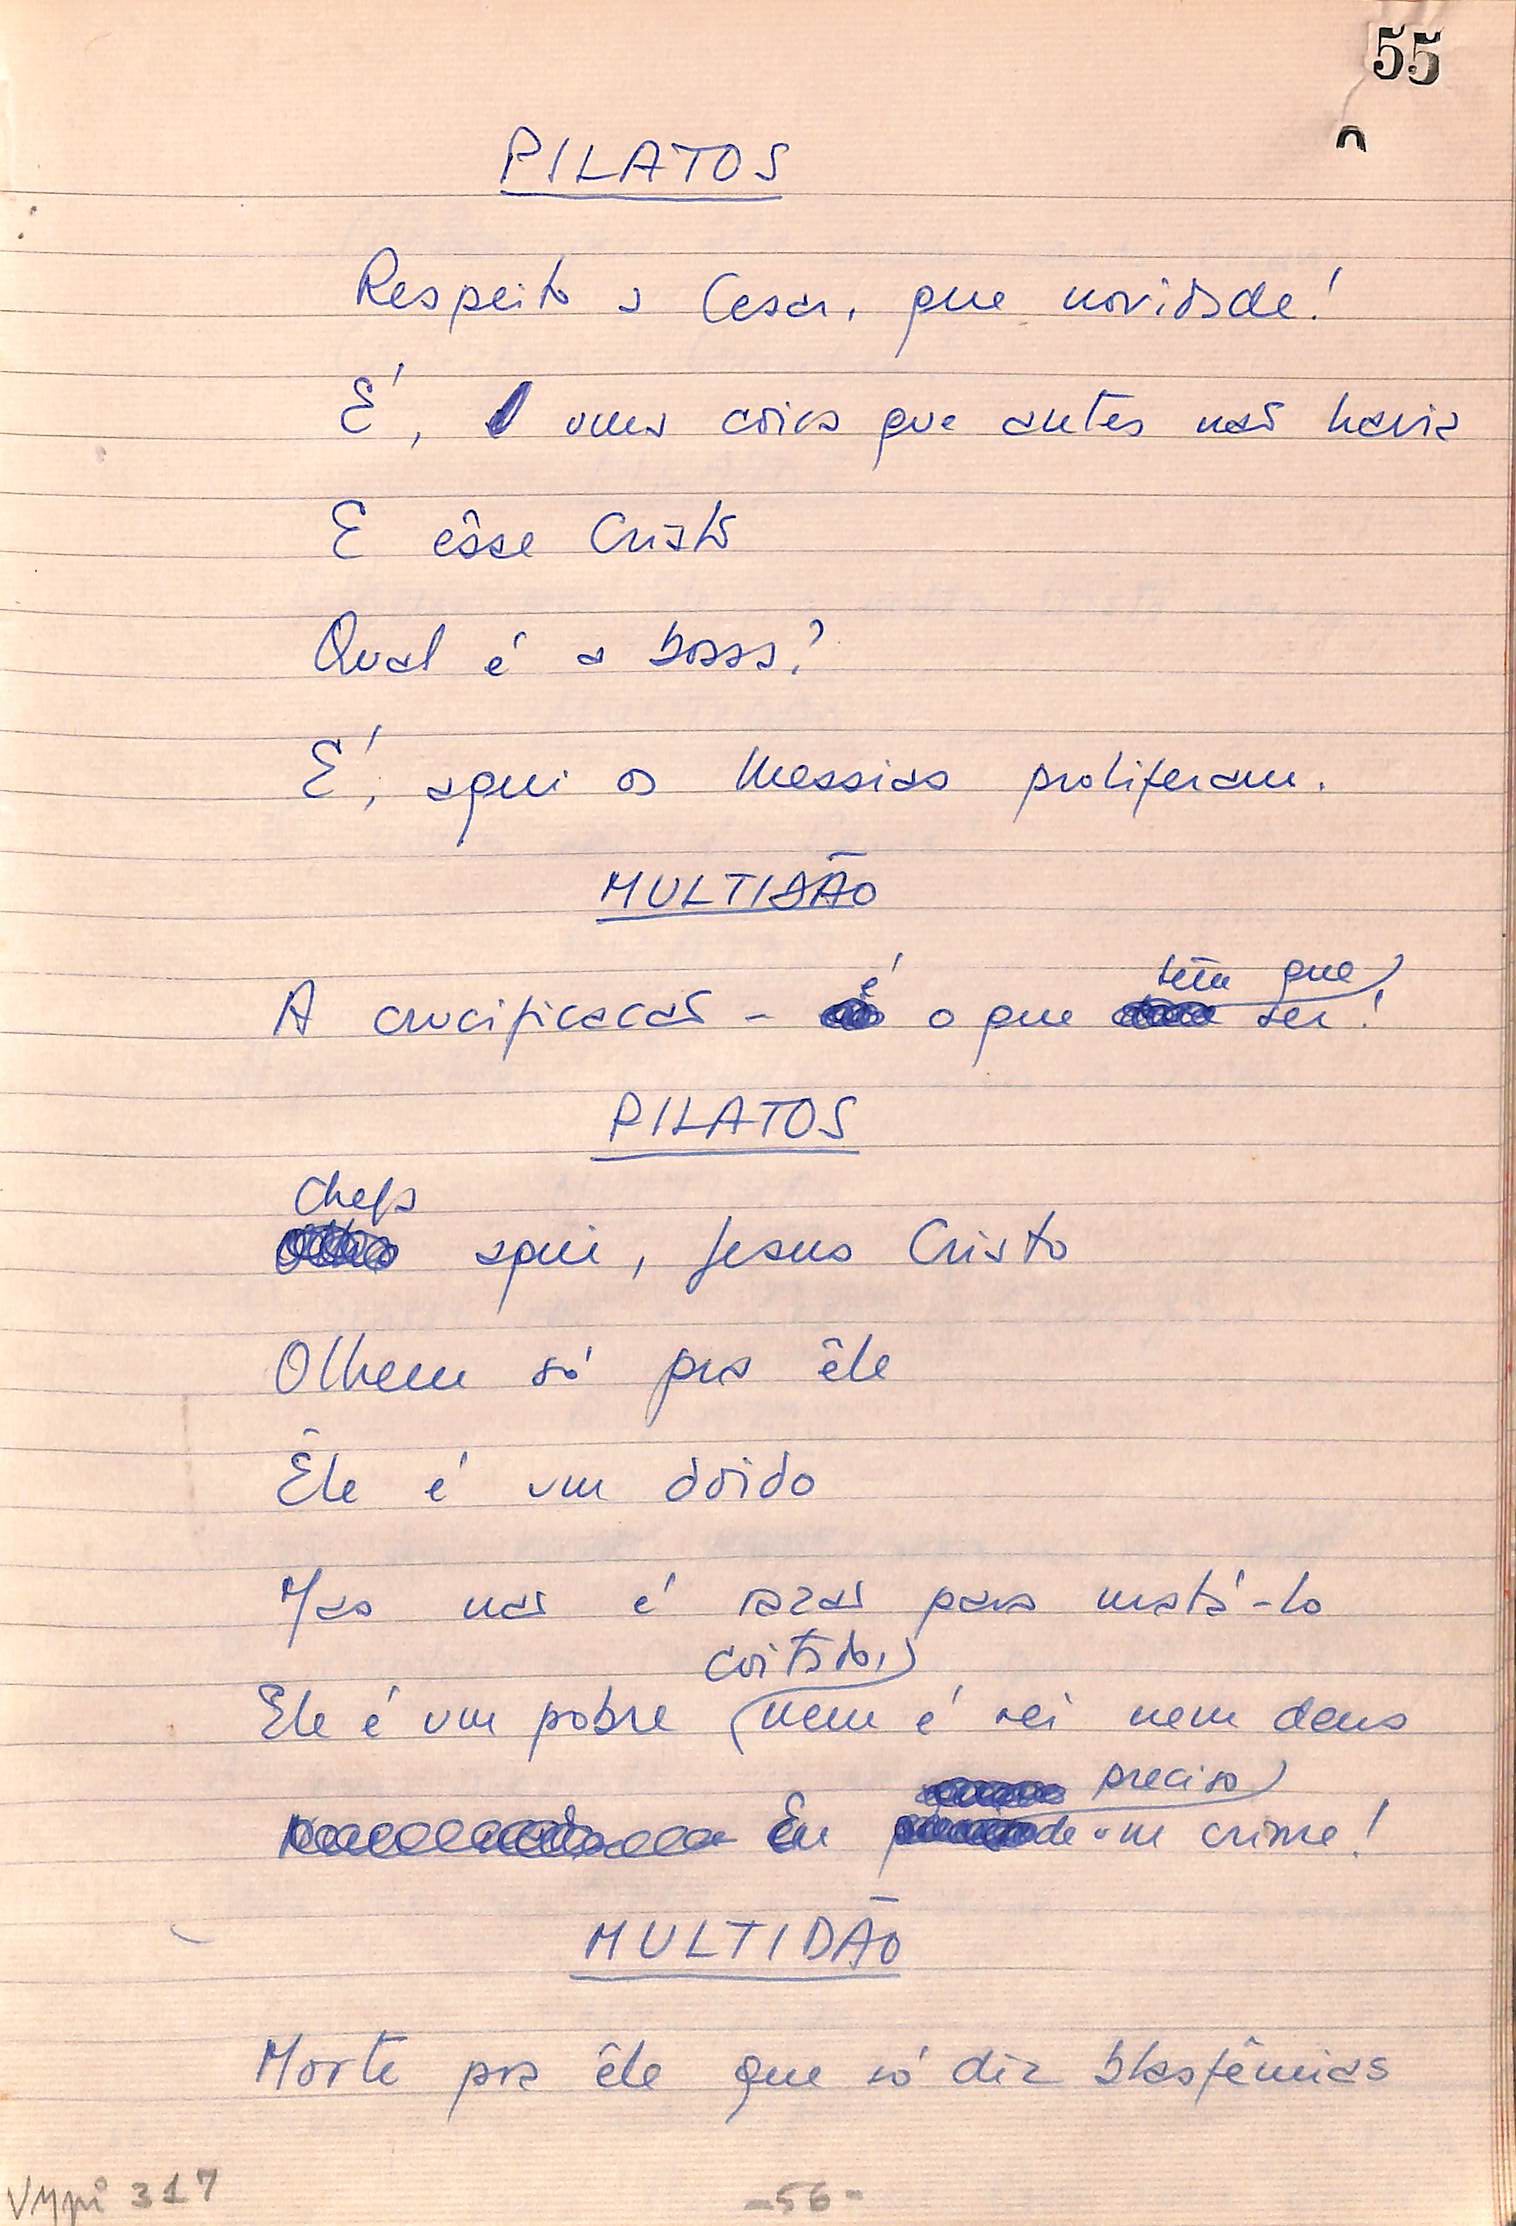 55
PILATOS
Respeito a Cesar, que novidade!
É, uma coisa que antes não havia
E êsse Cristo
Qual é a bossa?
É, aqui os Messias proliferam.
MULTIDÃO
é tem que
A crucificacão - o que ser!
PILATOS
Chega
aqui, Jesus Cristo
Olhem só pra êle
Êle é um doido
Mas não é razão para matá-lo
coitado,
Ele é um pobre nem é rei nem deus
preciso
Eu de um crime!
MULTIDÃO
Morte pra êle que só diz blasfêmias
VMpi 317
-56-